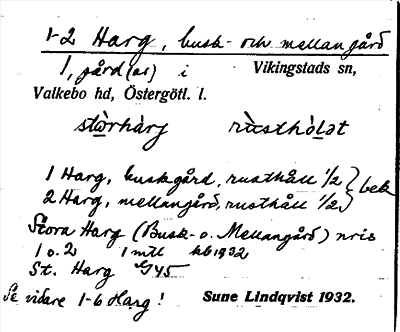 1-2 Harg, busk- och mellangård
1, gård(ar) i Vikingstads sn,
Valkebo hd, Östergötl. l.
stòrhàrg rùsthòlət
1 Harg, buskgård, rusthåll 1/2 } bek
2 Harg, mellangård, rusthåll 1/2
Stora Harg (Busk- o. Mellangård) nris
1 o. 2 1 mtl kb1932
St. Harg G45
Se vidare 1-6 Harg! Sune Lindqvist 1932.